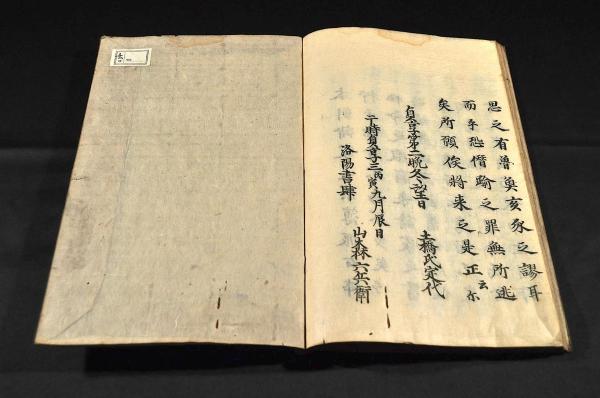 思之有魯奐亥豕之謬耳
而乎恐僭踰之罪無所逃
矣所願俟將来之是正云尓
貞享第二晩冬望日
土橋氏宗代
于時貞享三丙寅九月辰日
洛陽書肆
山本林六兵衛